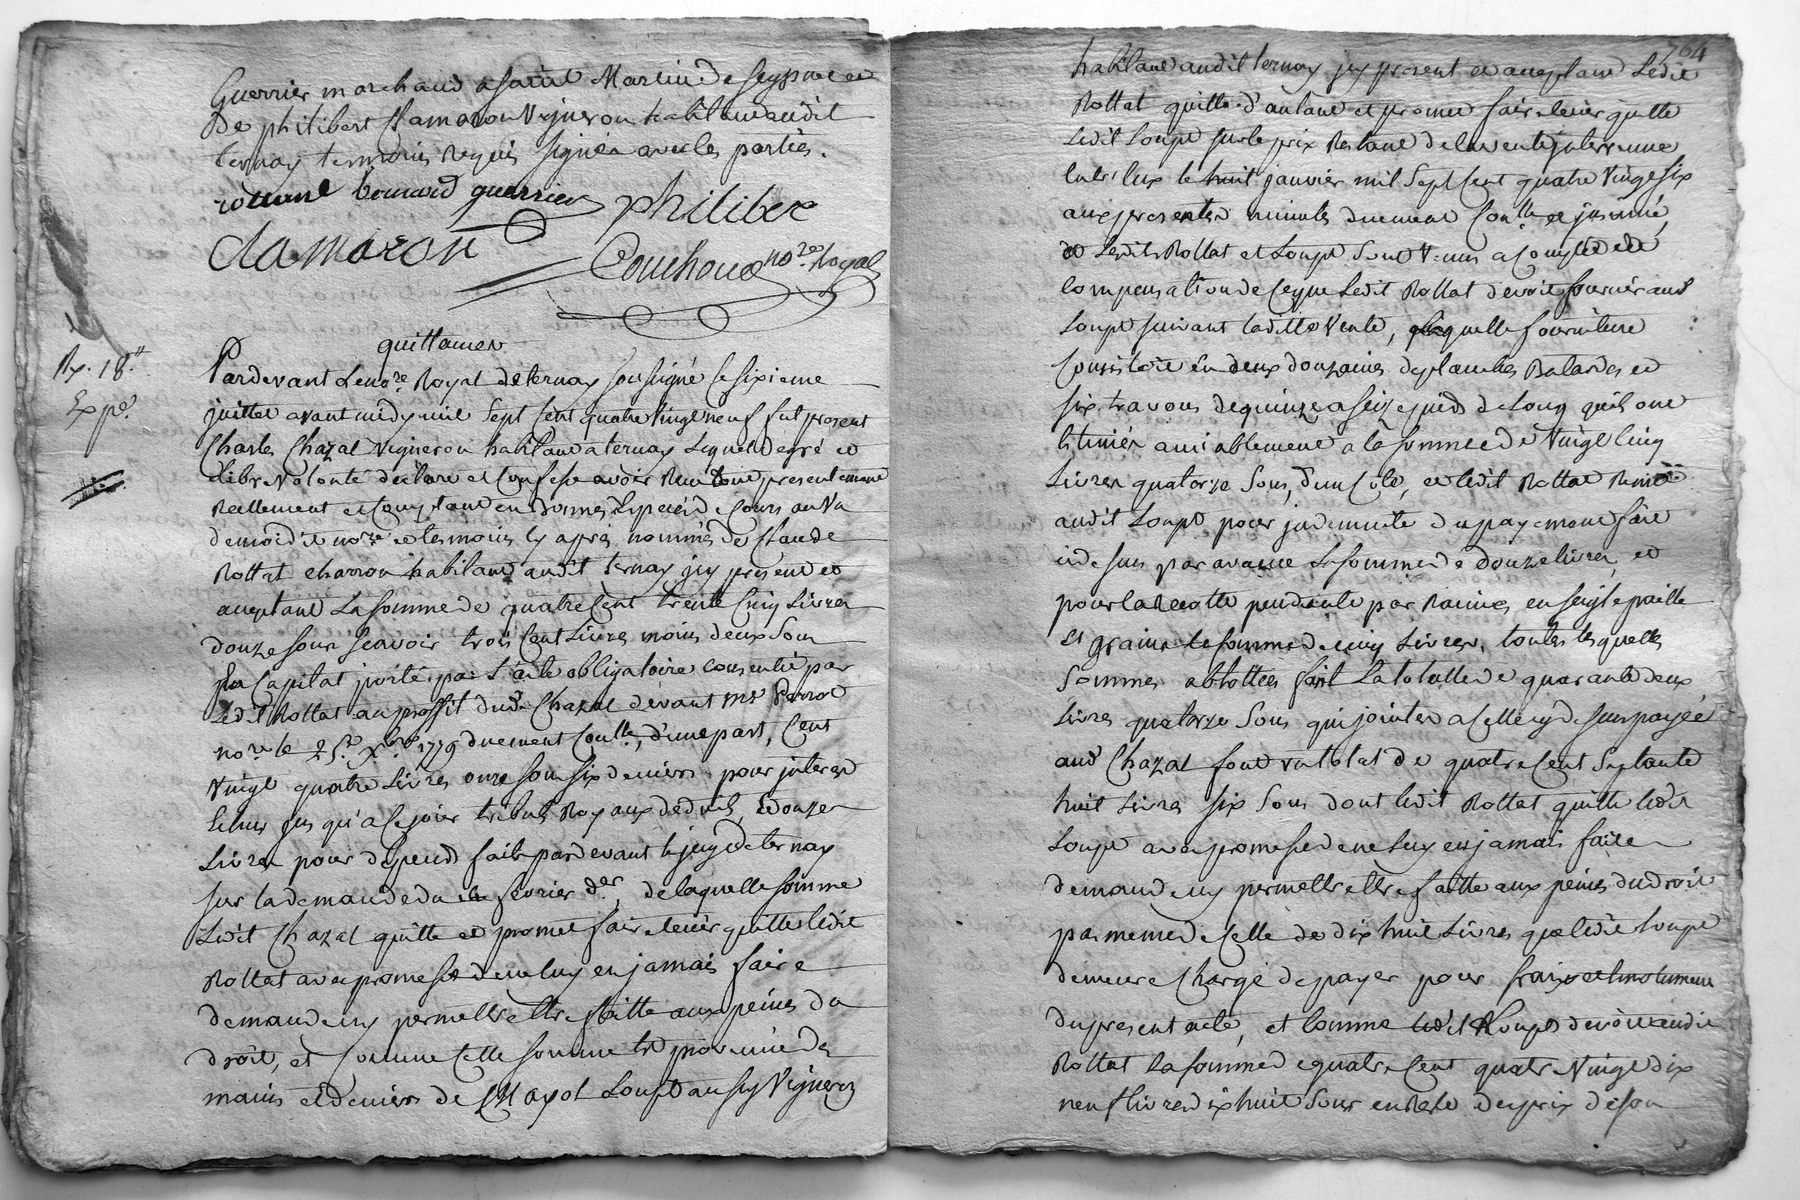 Guerrier marchand a saint Martin de seyssuel et
de philibert Clamaron Vigneron habitant audit
ternay temoins requis signés avec les parties.
rottat bernard guerrier philiber
clamaron
Couchoud no.re Royal
quittance
Ry. 18.s
Exp.é
Pardevant Le no.re Royal de ternay soussigné le sixieme
juillet avant midy mil sept cent quatre vingt neuf fut present
Charles Chazal Vigneron habitant a ternay Lequel de gré et
Libre Volonté declare et confesse avoir Reçu tout presentement
Reellement et comptant en bonnes Especes de cours au Vu
de moidit no.re et temoins cy apres nommés de Claude
Rottat charron habitant audit ternay icy present et
acceptant La somme de quatre Cent trente Cinq Livres
douze sous scavoir trois Cent Livres moins deux sous
Capital porté par L'acte obligatoire consentie par
Ledit Rottat au proffit dud. Chazal devant Me
no.re le 25.e X.bre 1779 duement Con.llé, d'une part, Cent
Vingt quatre Livres onze sous six deniers pour interest
Echus jusqu'a ce jour tributs Royaux deduits, Et douze
Livres pour depend faits pardevant le juge de ternay
sur la demande du fevrier d.er, de laquelle somme
Ledit Chazal quitte et promet faire tenir quitte ledit
Rottat avec promesse de ne luy en jamais faire
demande ny permettre estre faitte aux peines du
droit, et comme cette somme est provenue des
mains et deniers de Mayol Loupt aussy Vigneron
764
habitant audit ternay icy present et acceptant Ledit
Rottat quitte d'autant et promet faire tenir quitte
Ledit Loupt sur le prix Restant de la vente intervenue
Entr'eux le huit janvier mil sept Cent quatre Vingt six
aux presentes minutes duement Con.llé et
et Lesdits Rottat et Loupt sont Venus a compte et de
compensation de ce que Ledit Rottat devoit fournir aud.
Loupt suivant laditte Vente, laquelle fourniture
Consistoit en deux douzaines de planches Balardes et
six travons de quinze a seize pieds de Long qu'ils ont
Estimés amiablement a la somme de Vingt cinq
Livres quatorze sous, d'un Côté, et ledit Rottat Remet
audit Loupt pour indemnité du payement fait
cidessus par avance La somme de douze livres, et
pour la Recolte pendante par Racines en seigle paille
Et grains la somme de cinq Livres, toutes lesquelles
sommes abtottées font La totalle de quarante deux
Livres quatorze sous qui jointes a celle cy dessus payée
aud. Chazal font un total de quatre Cent septante
huit Livres six sous dont ledit Rottat quitte ledit
Loupt avec promesse de ne luy en jamais faire
demande ny permettre estre faitte aux peines du droit
pas meme de celle de dix huit Livres que ledit Loupt
demeure chargé de payer pour frais et Emolument
du present acte, et comme ledit Loupt devoit audit
Rottat La somme de quatre Cent quatre Vingt dix
neuf livres dix huit sous en Reste du prix de son